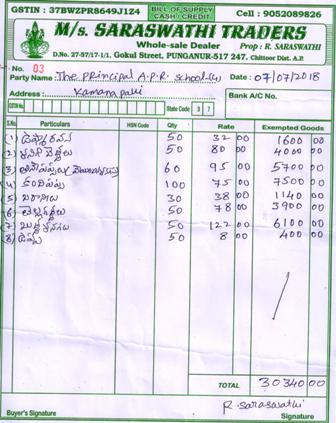 GSTIN : 37BWZPR8649J1Z4 BILL OF SUPPLY CASH / CREDIT Cell : 9052089826
M/s. SARASWATHI TRADERS
Whole-sale Dealer Prop : R. SARASWATHI
D.No. 27-57/17-1/1, Gokul Street, PUNGANUR-517 247. Chittoor Dist. A.P.
No. 03
Party Name : The Principal A.P.R. School Date : 07/07/2018
Address : Bank A/C No.
GSTIN No. State Code 3 7
S.No. Particulars HSN Code Qty Rate Exempted Goods
(1) 50 32 00 1600 00
(2) 50 80 00 4000 00
(3) 60 95 00 5700 00
(4) కందిపప్పు 100 75 00 7500 00
(5) 30 38 00 1140 00
(6) 50 78 00 3900 00
(7) 50 122 00 6100 00
(8) 50 8 00 400 00
TOTAL 30340 00
R. Saraswathi
Buyer's Signature Signature